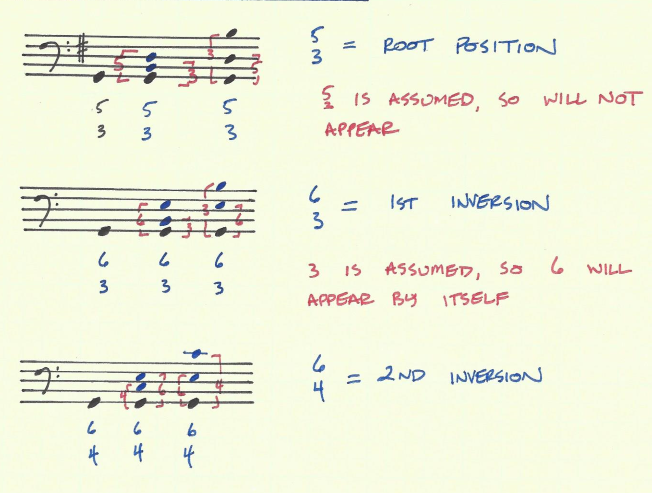 5
3 = ROOT POSITION
5
3 IS ASSUMED, SO WILL NOT
APPEAR
5 3 3 5
5 5 5
3 3 3
6
3 = 1ST INVERSION
3 IS ASSUMED, SO 6 WILL
APPEAR BY ITSELF
6 3 3 6
6 6 6
3 3 3
6
4 = 2ND INVERSION
4 6 6 4
6 6 6
4 4 4